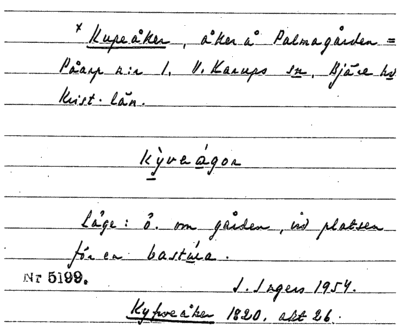 x Kupeåker, åker å Palmagården =
Påarp n:r 1, V. Karups sn, Bjäre hd
Krist. län.
Kỳveågor
Läge: ö. om gården, vid platsen
för en baståra.
Nr 5199.
J. Ingers 1954.
Kyfveåker 1820, akt 26.